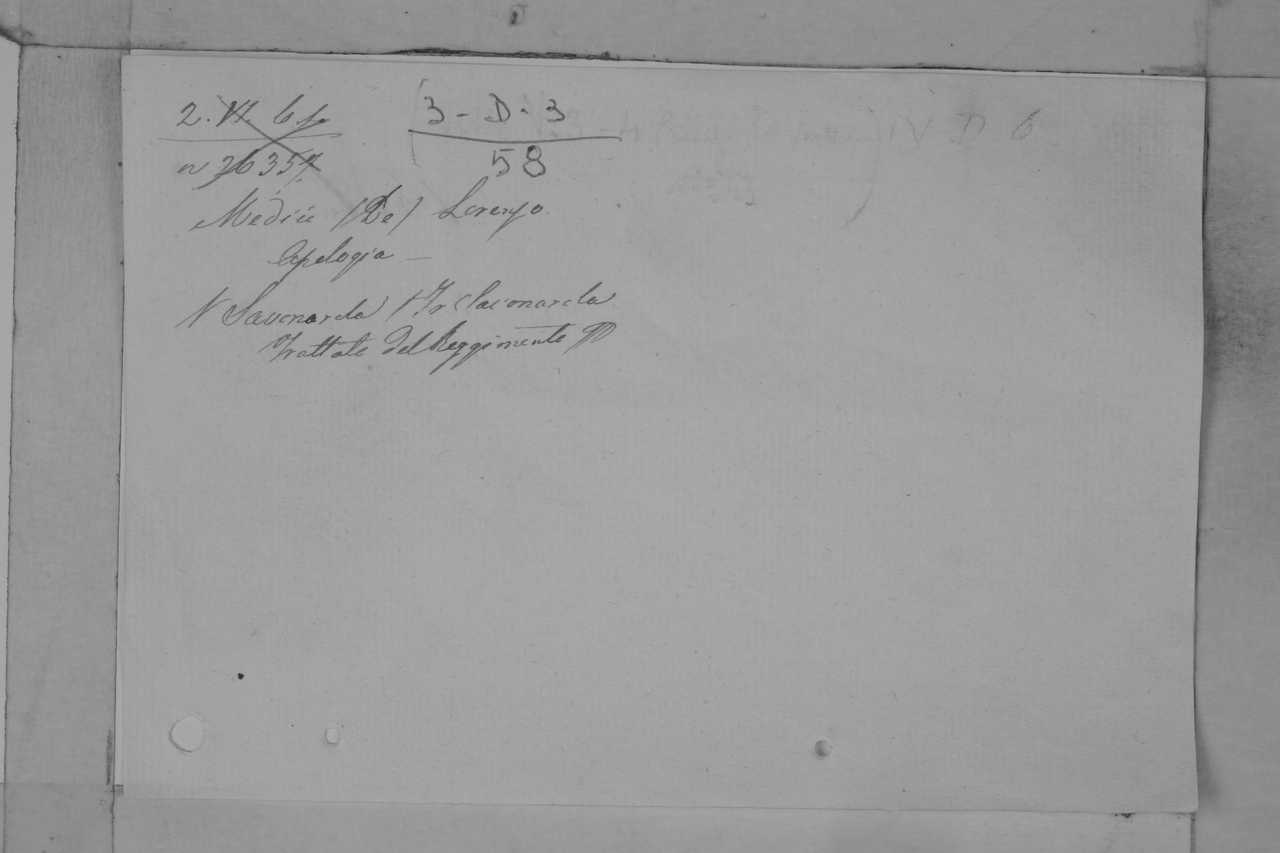 2. VI. 6
3 - D - 3
n 36357
58
Medici (De) Lorenzo
Apologia —
V Savonarola Fr Savonarola
Trattato del Reggimento